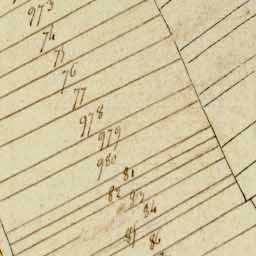 973
74
75
76
77
978
979
980
81
82 83
84
85 86